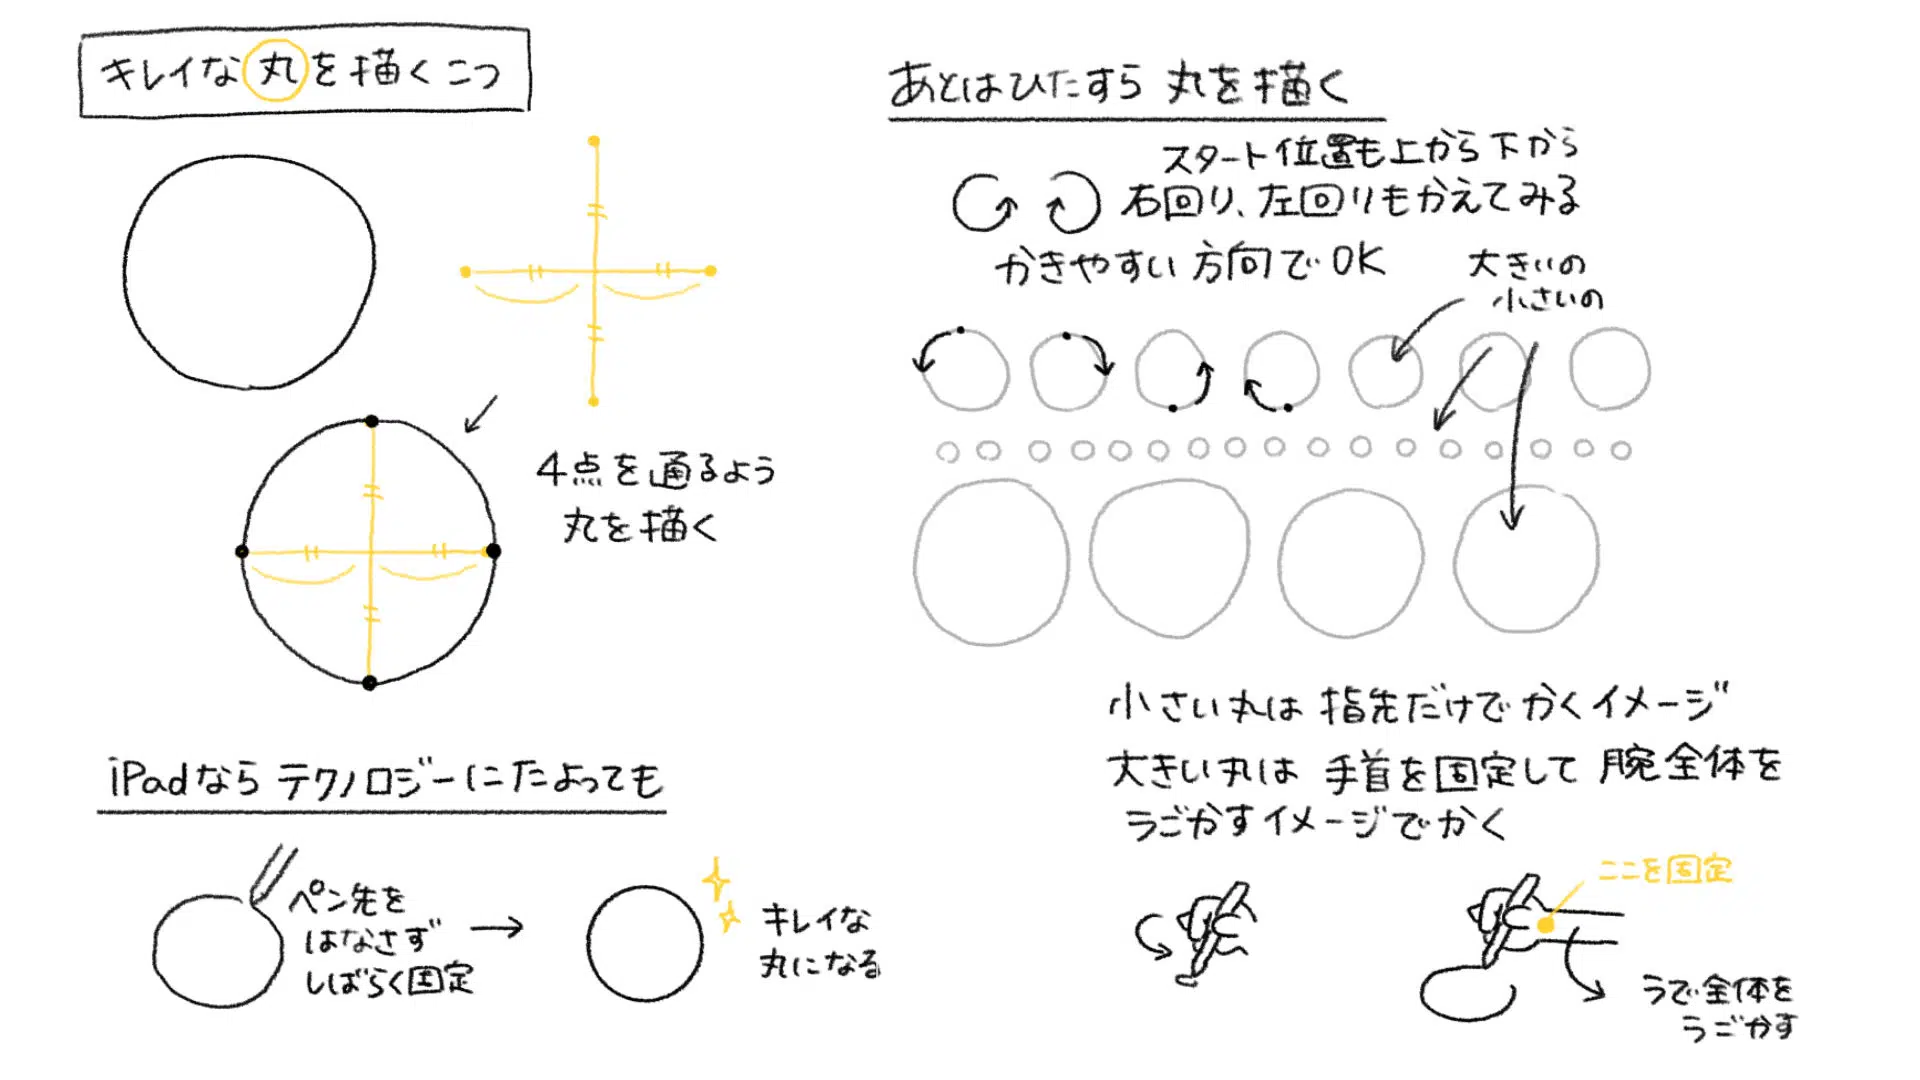 キレイな丸を描くこつ
4点を通るよう
丸を描く
iPadなら テクノロジーにたよっても
ペン先を
はなさず
しばらく固定
キレイな
丸になる
あとはひたすら 丸を描く
スタート位置も上から下から
右回り、左回りもかえてみる
かきやすい方向でOK
大きいの
小さいの
小さい丸は 指先だけでかくイメージ
大きい丸は 手首を固定して 腕全体を
うごかすイメージでかく
ここを固定
うで全体を
うごかす